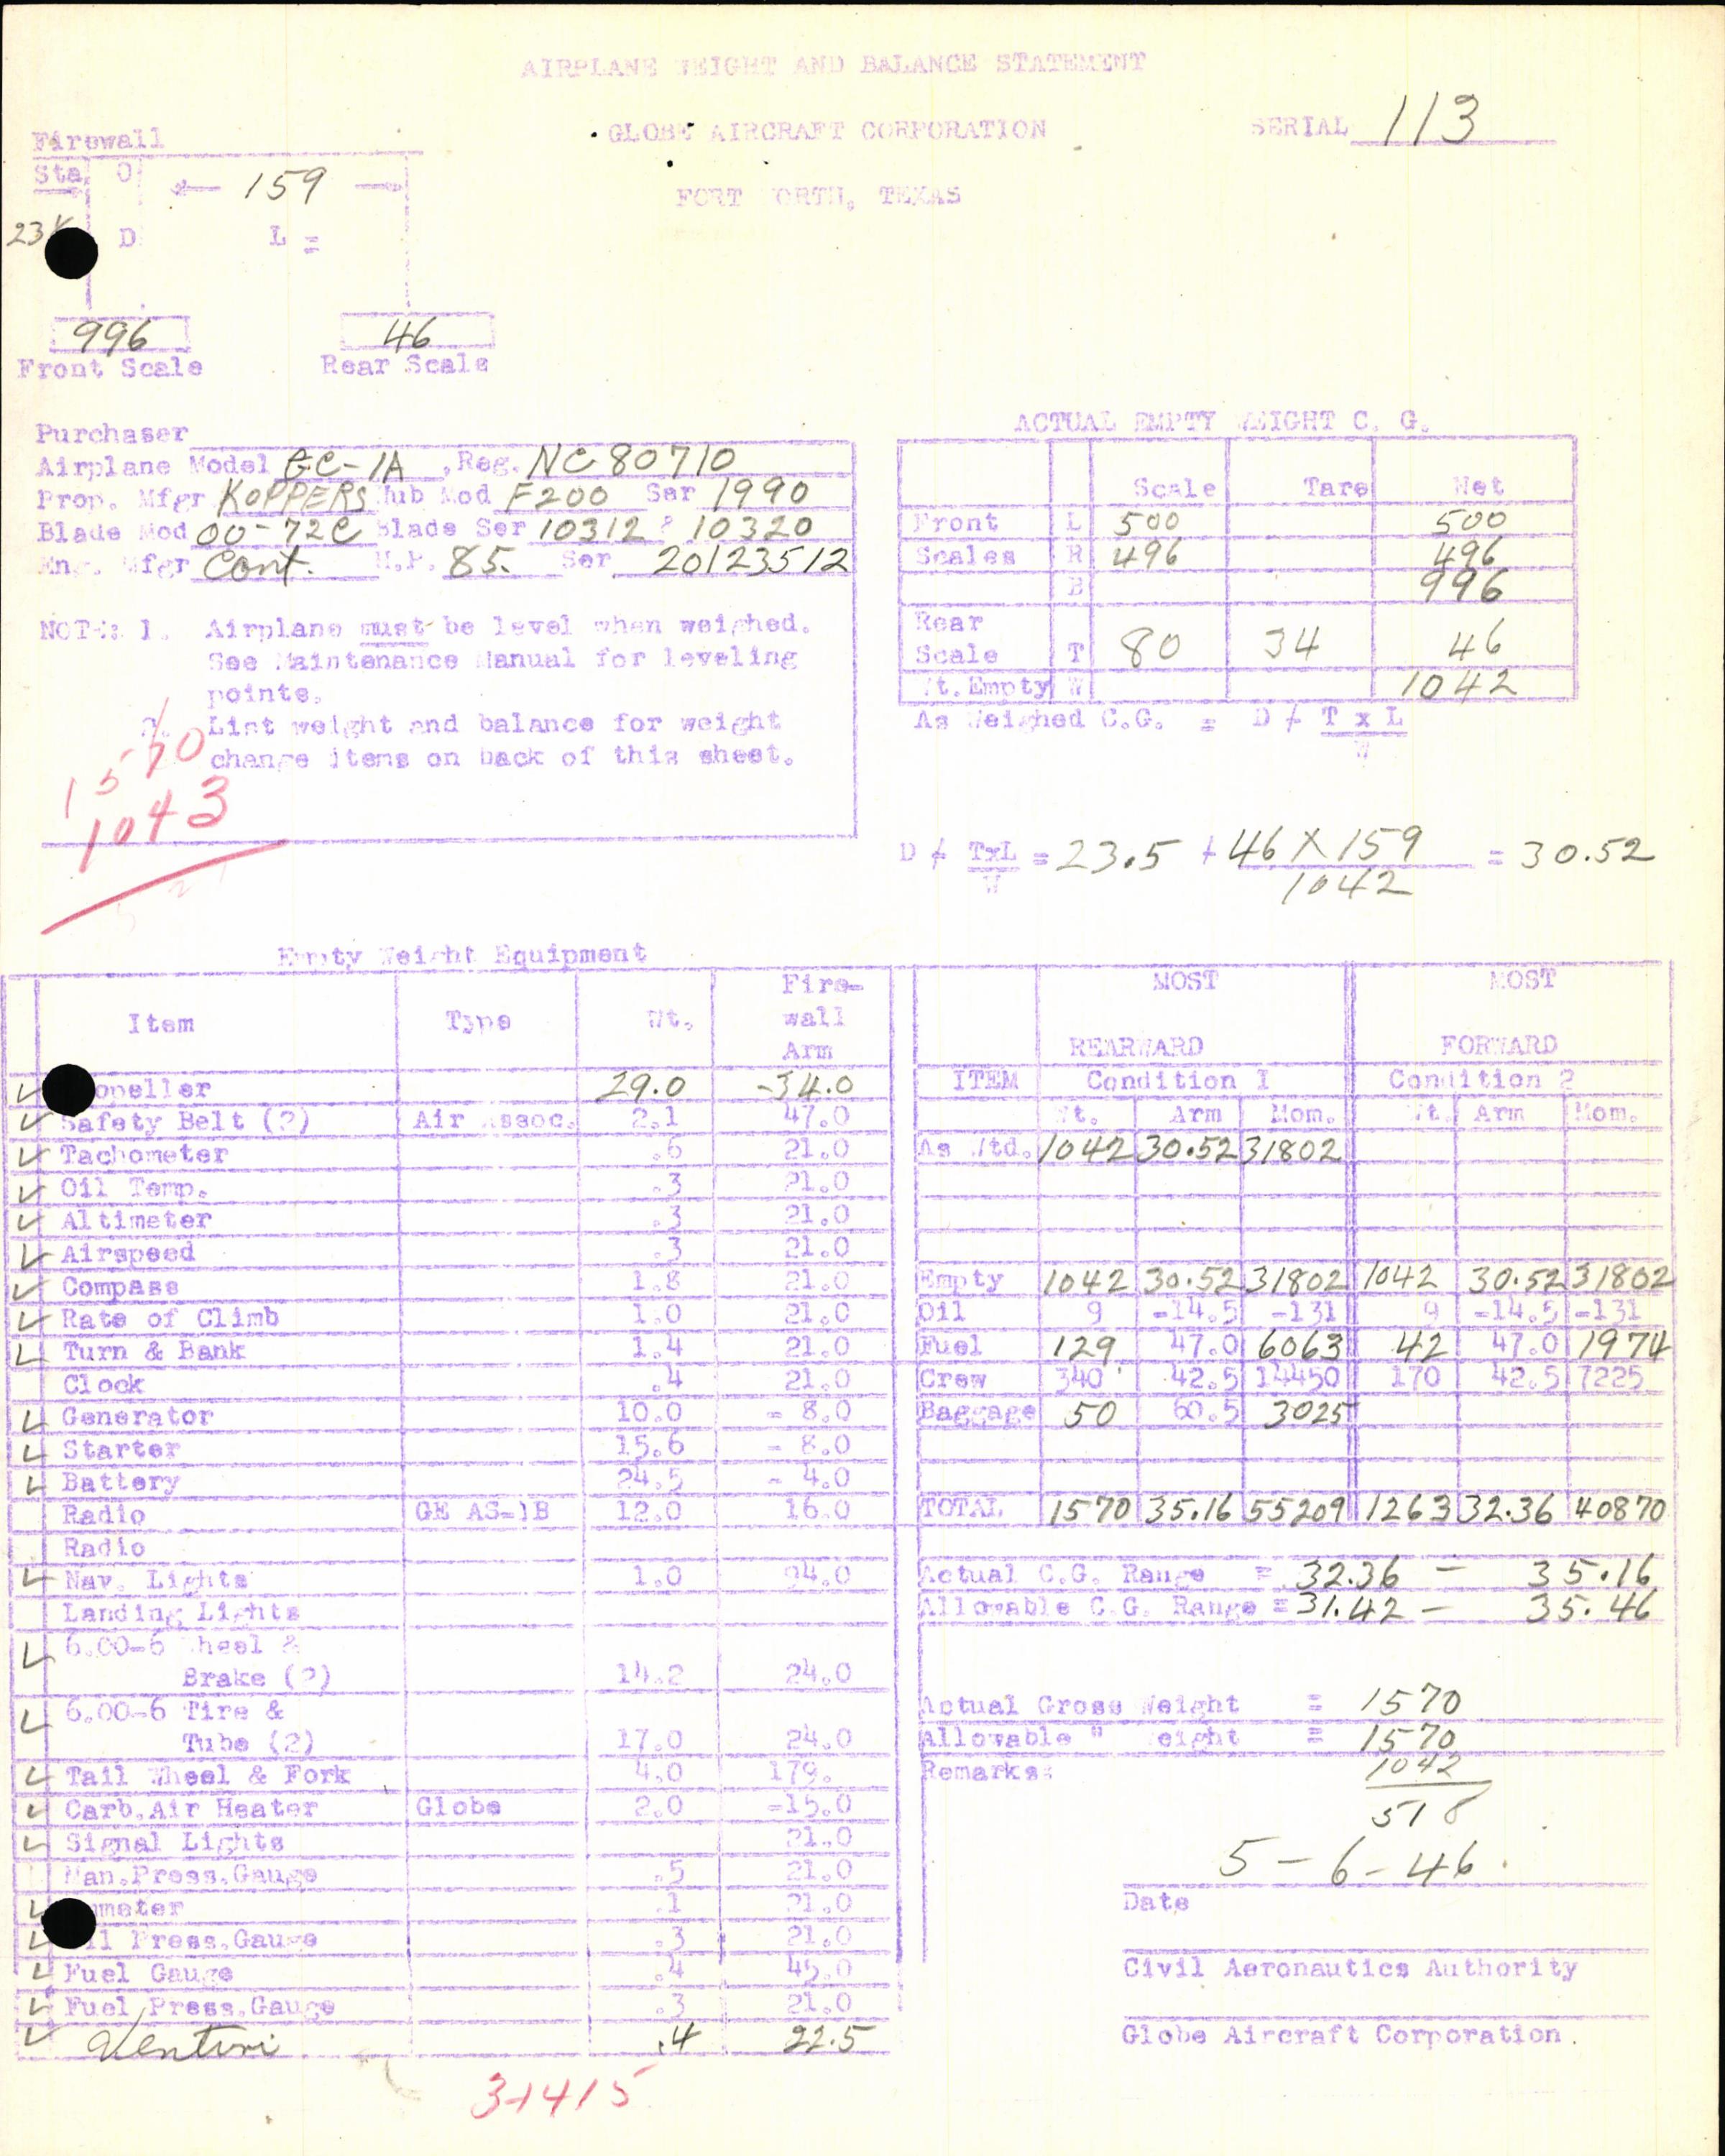 AIRPLANE WEIGHT AND BALANCE STATEMENT
GLOBE AIRCRAFT CORPORATION
SERIAL 113
FORT WORTH, TEXAS
Firewall
Sta. 0
159
D L =
996 46
Front Scale Rear Scale
Purchaser
Airplane Model GC-1A , Reg. NC80710
Prop. Mfgr KOPPERS Hub Mod F200 Ser 1990
Blade Mod 00-72C Blade Ser 10312 & 10320
Eng. Mfgr Cont. H.P. 85. Ser 20123512
NOTE: 1. Airplane must be level when weighed.
See Maintenance Manual for leveling
points.
2. List weight and balance for weight
change items on back of this sheet.
1570
1043
ACTUAL EMPTY WEIGHT C. G.
Scale Tare Net
Front L 500 500
Scales R 496 496
B 996
Rear
Scale T 80 34 46
Wt. Empty W 1042
As Weighed C.G. = D + T x L
W
D + TxL = 23.5 + 46 X 159 = 30.52
W 1042
Empty Weight Equipment
Item Type Wt. Fire-
wall
Arm
Propeller 29.0 -34.0
Safety Belt (2) Air Assoc. 2.1 47.0
Tachometer .6 21.0
Oil Temp. .3 21.0
Altimeter .3 21.0
Airspeed .3 21.0
Compass 1.8 21.0
Rate of Climb 1.0 21.0
Turn & Bank 1.4 21.0
Clock .4 21.0
Generator 10.0 - 8.0
Starter 15.6 - 8.0
Battery 24.5 - 4.0
Radio GE AS-1B 12.0 16.0
Radio
Nav. Lights 1.0 94.0
Landing Lights
6.00-6 Wheel &
Brake (2) 14.2 24.0
6.00-6 Tire &
Tube (2) 17.0 24.0
Tail Wheel & Fork 4.0 179.
Carb.Air Heater Globe 2.0 -15.0
Signal Lights 21.0
Man.Press.Gauge .5 21.0
Ammeter .1 21.0
Oil Press.Gauge .3 21.0
Fuel Gauge .4 45.0
Fuel Press.Gauge .3 21.0
Venturi .4 22.5
31415
MOST MOST
REARWARD FORWARD
ITEM Condition 1 Condition 2
Wt. Arm Mom. Wt. Arm Mom.
As Wtd. 1042 30.52 31802
Empty 1042 30.52 31802 1042 30.52 31802
Oil 9 -14.5 -131 9 -14.5 -131
Fuel 129 47.0 6063 42 47.0 1974
Crew 340 42.5 14450 170 42.5 7225
Baggage 50 60.5 3025
TOTAL 1570 35.16 55209 1263 32.36 40870
Actual C.G. Range = 32.36 - 35.16
Allowable C.G. Range = 31.42 - 35.46
Actual Gross Weight = 1570
Allowable " Weight = 1570
Remarks: 1042
518
5-6-46.
Date
Civil Aeronautics Authority
Globe Aircraft Corporation.